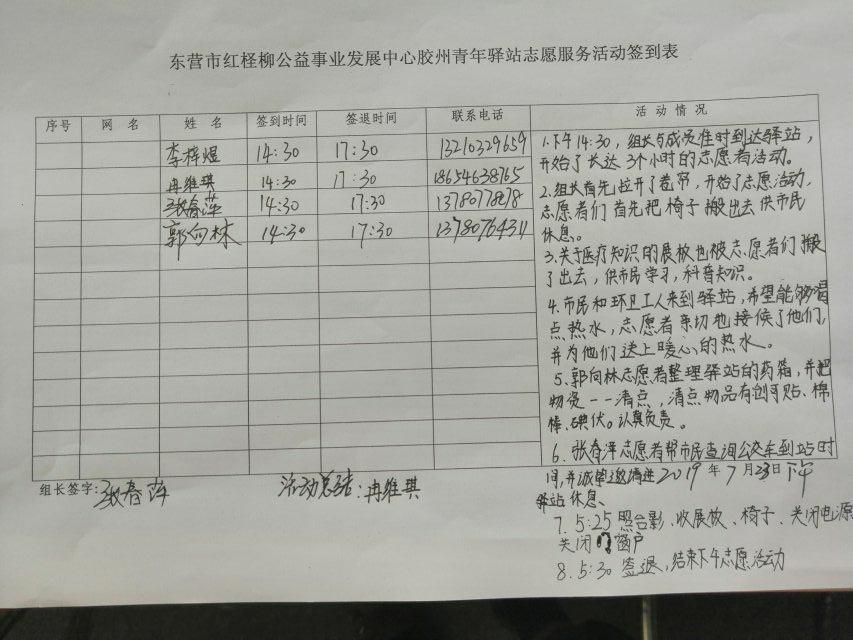 东营市红柽柳公益事业发展中心胶州青年驿站志愿服务活动签到表
序号 网名 姓名 签到时间 签退时间 联系电话 活动情况
李梓煜 14:30 17:30 13210329659
冉维琪 14:30 17:30 18654638765
张春萍 14:30 17:30
郭向林 14:30 17:30
1.下午14:30，组长与成员准时到达驿站，
开始了长达3个小时的志愿者活动。
2.组长首先拉开了卷帘，开始了志愿活动，
志愿者们首先把椅子搬出去供市民
休息。
3.关于医疗知识的展板也被志愿者们搬
了出去，供市民学习，科普知识。
4.市民和环卫工人来到驿站，希望能够喝
点热水，志愿者亲切地接侯了他们，
并为他们送上暖心的热水。
5.郭向林志愿者整理驿站的药箱，并把
物资一一清点，清点物品有创可贴、棉
棒、碘伏。认真负责。
6.张春萍志愿者帮市民查询公交车到站时
间，并诚挚邀请进
驿站休息、
7.5:25照合影、收展板、椅子、关闭电源
关闭门窗户
8.5:30签退，结束下午志愿活动
组长签字:张春萍 活动总结:冉维琪 2019年7月23日下午